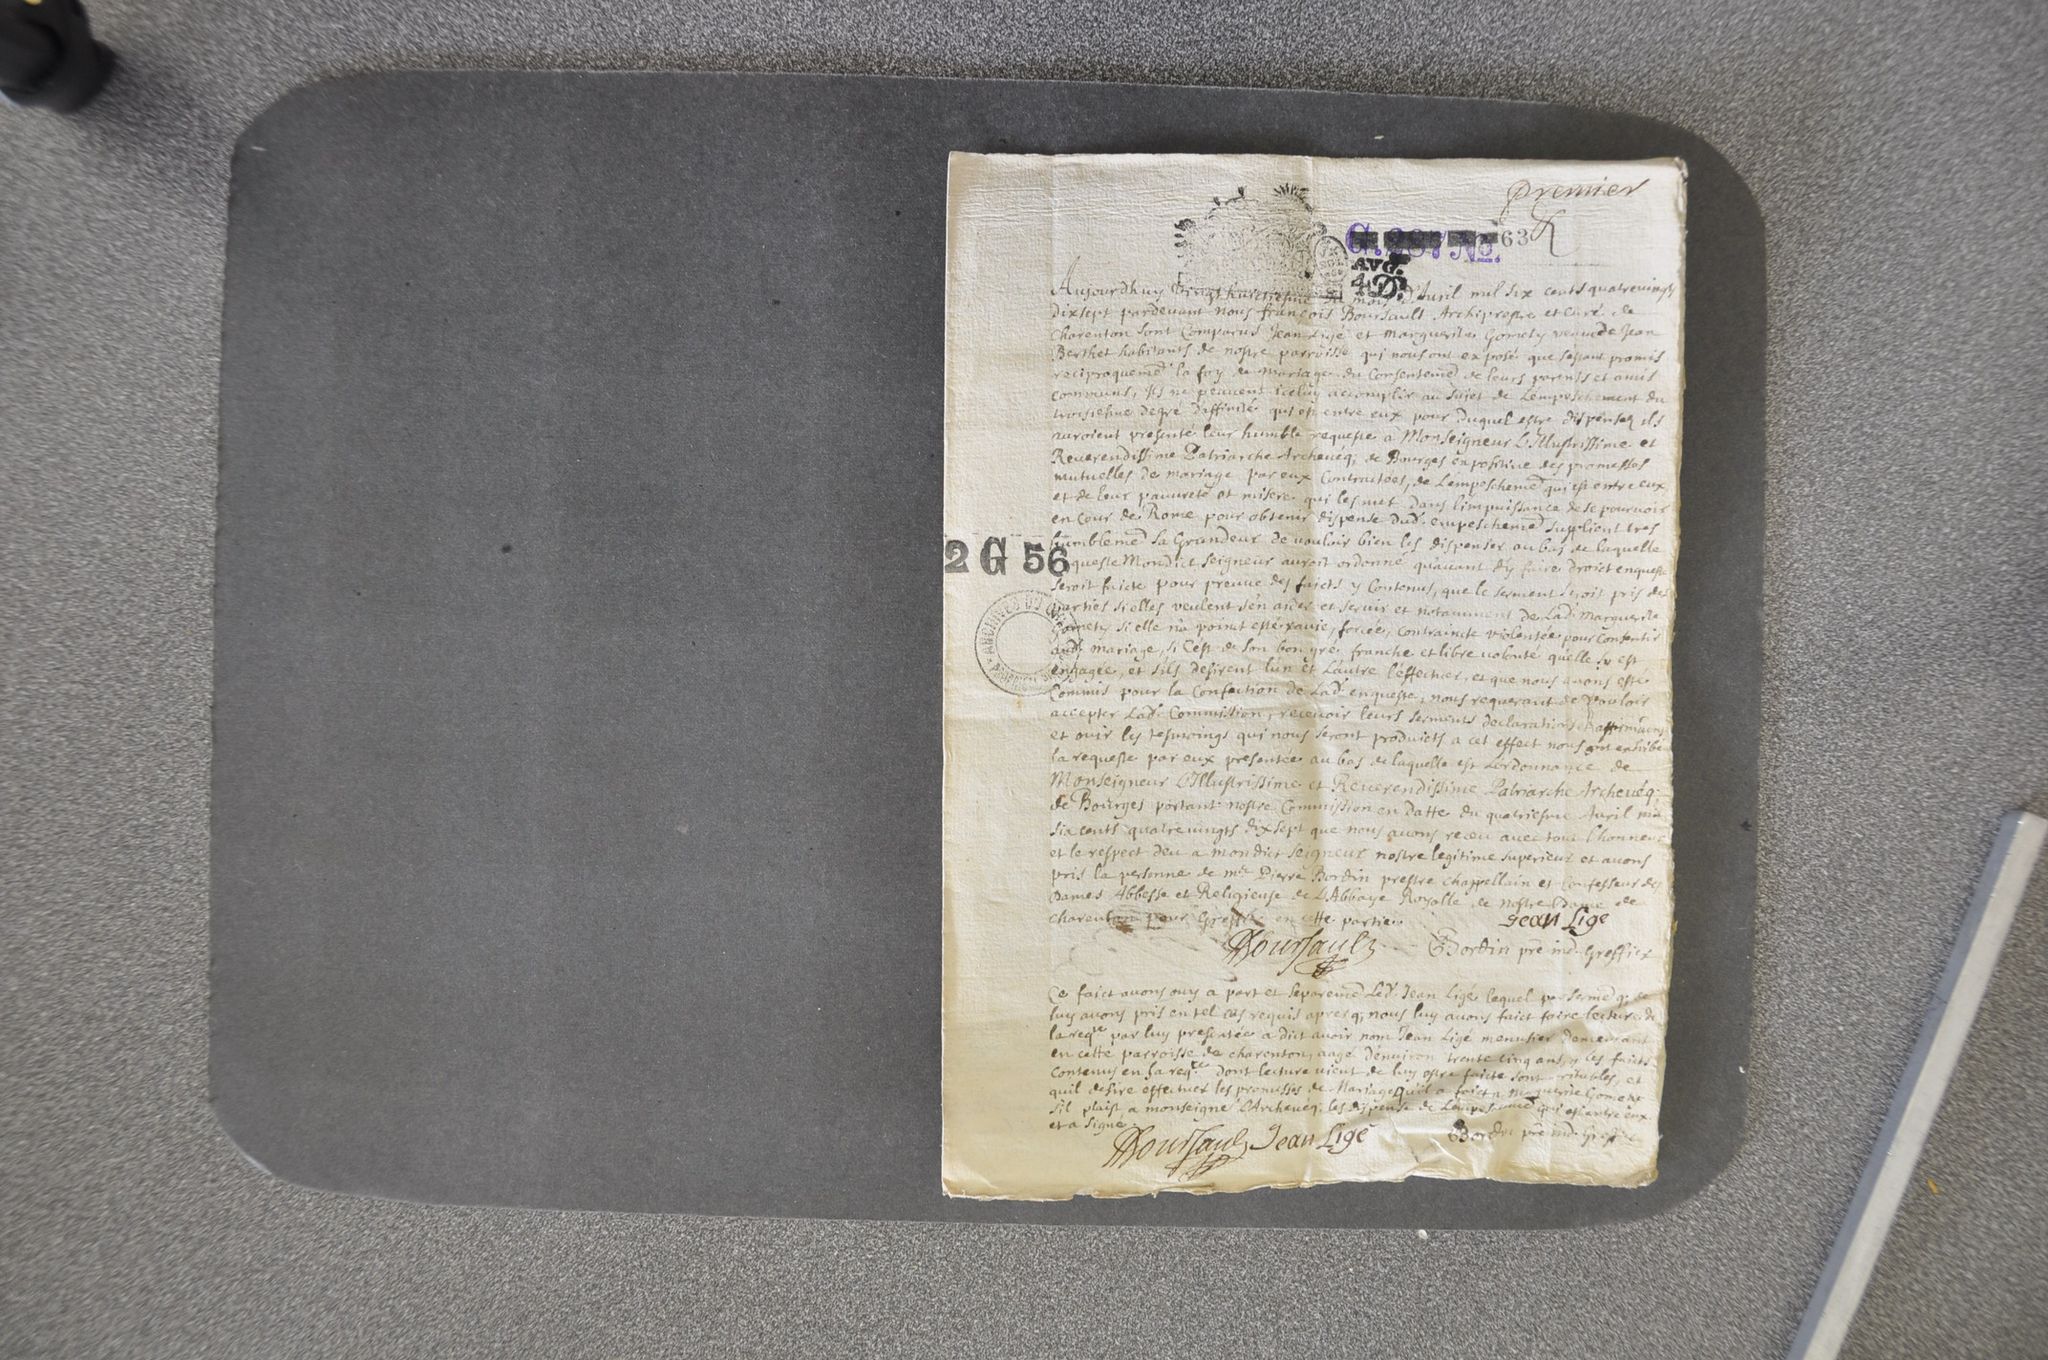 Premier
G. 287 No. 63
AVG.
4 D.
Aujourdhuy vingt huictiesme du mois d'Auril mil six cents quatrevingts
dixsept pardevant nous françois Boursault Archiprestre et Curé de
Charenton sont Comparus Jean Ligé et Marguerite Gomety veuve de Jean
Berthet habitants de nostre parroisse qui nous ont exposé que sestant promis
reciproquemēt la foy de mariage du Consentemēt de leurs parents et amis
communs, Ils ne peuvent iceluy accomplir au sujet de Lempeschement du
troisiesme degré Daffinité qui est entre eux pour Duquel estre dispensez ils
auroient presenté leur humble requeste à Monseigneur L'Illustrissime et
Reverendissime Patriarche Archeueq; de Bourges expositiue des promesses
mutuelles de mariage par eux Contractées, de Lempeschemēt qui est entre eux
et de leur pauureté et misere qui les met dans limpuissance de se pouruoir
en Cour de Rome pour obtenir dispense Dud. empeschemēt supplient tres
humblemēt sa Grandeur de vouloir bien les dispenser au bas de laquelle
requeste Mondict seigneur auroit ordonné quauant dy faire droict enqueste
seroit faicte pour preuue des faicts y Contenus, que le serment seroit pris des
parties si elles veulent s'en aider et seruir et notamment de Lad. Marguerite
Gomety si elle n'a poinct esté rauie, forcée, contraincte violentée pour Consentir
aud. mariage, si C'est de son bon gré franche et libre volonté quelle sy est
engagée et s'ils desirent lun et Lautre L'effectuer, et que nous auons esté
Commis pour la Confection de Lad. enqueste, nous requerant de vouloir
accepter Lad. Commission, receuoir leurs serments declarations & affirmations
et ouir les tesmoings qui nous seront produicts a cet effect nous ont exhibé
la requeste par eux presentée au bas de laquelle est Lordonnance de
Monseigneur L'Illustrissime et Reverendissime Patriarche Archeuéq;
de Bourges portant nostre Commission en datte du quatriesme Auril mil
six cents quatrevingts dixsept que nous auons receu auec tout Lhonneur
et le respect deu a mondict seigneur nostre legitime superieur et auons
pris la personne de mre Pierre Bordin prestre chappellain et Confesseur des
Dames Abbesse et Religieuse de L'Abbaye Royalle de Nostre Dame de
Charenton pour Greffier en cette partie.
Jean Ligé
Boursault
Bordin
Greffier
2 G 56
ARCHIVES DU CHER
Ce faict auons ouy a part et separemēt Led. Jean Ligé lequel par sermēt q; de
luy auons pris en tel cas requis apres q; nous luy auons faict faire lecture de
la reqte par luy presentée a dict auoir nom Jean Ligé menusier demeurant
en cette parroisse de charenton, aagé denuiron trente cinq ans, q; les faicts
Contenus en sa reqte dont lecture vient de luy estre faicte sont veritables, et
quil desire effectuer les promesses de Mariage qu'il a faict a Marguerite Gomety
s'il plaist a monseignr L'Archeueq; les dispenser de Lempeschemēt qui est entre eux
et a signé.
Boursault Jean Ligé
Bordin
Greffier